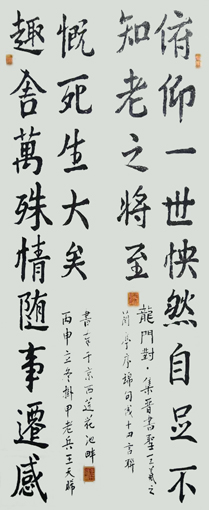 俯仰一世怏然自足不
知老之將至
龍門對·集晉書聖王羲之
蘭亭序錦句成十四言聯
趣舍萬殊情随事遷感
慨死生大矣
書于京西蓮花池畔
丙申立冬卸甲老兵王天